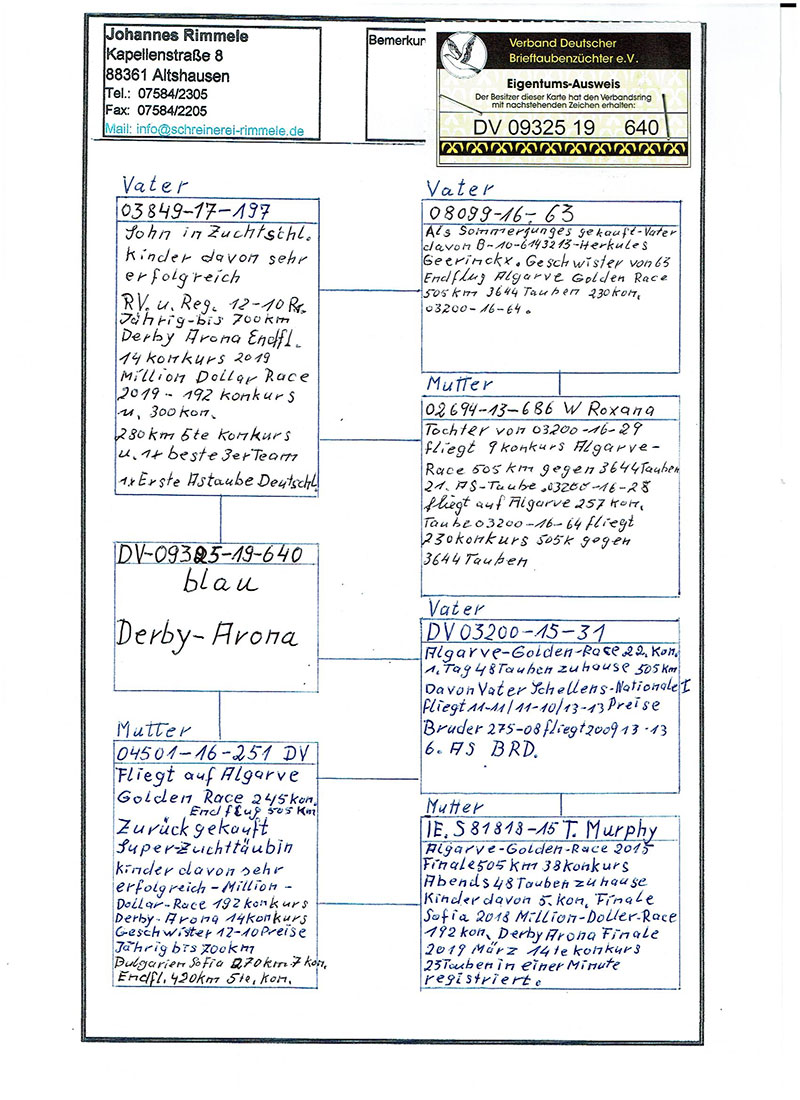 Johannes Rimmele
Kapellenstraße 8
88361 Altshausen
Tel.: 07584/2305
Fax: 07584/2205
Mail: info@schreinerei-rimmele.de
Bemerkun
Verband Deutscher
Brieftaubenzüchter e.V.
Eigentums-Ausweis
Der Besitzer dieser Karte hat den Verbandsring
mit nachstehenden Zeichen erhalten:
DV 09325 19 640
Vater
03849-17-197
Sohn in Zuchtsthl.
Kinder davon sehr
erfolgreich
RV. u. Reg. 12-10 Pr.
Jährig-bis 700km
Derby Arona Endfl.
14 konkurs 2019
Million Dollar Race
2019- 192 konkurs
u. 300 kon.
280km 5te konkurs
u. 1x beste 3er Team
1x Erste Astaube Deutschl.
DV-09325-19-640
blau
Derby-Arona
Mutter
04501-16-251 DV
Fliegt auf Algarve
Golden Race 245kon.
Endflug 505 Km
Zurück gekauft
Super-Zuchttäubin
kinder davon sehr
erfolgreich-Million-
Dollar-Race 192 konkurs
Derby-Arona 14konkurs
Geschwister 12-10Preise
Jährig bis 700km
Bulgarien Sofia 270km 7 kon.
Endfl. 420km 5te. kon.
Vater
08099-16-63
Als Sommerjunges gekauft-Vater
davon B-10-6143213-Herkules
Geerinckx. Geschwister von 63
Endflug Algarve Golden Race
505 km 3644 Tauben 230kon.
03200-16-64.
Mutter
02694-13-686 W Roxana
Tochter von 03200-16-29
fliegt 9 konkurs Algarve-
Race 505 km gegen 3644Tauben
21. AS-Taube .03200-16-28
fliegt auf Algarve 257 kon.
Taube 03200-16-64 fliegt
230konkurs 505k gegen
3644 Tauben
Vater
DV 03200-15-31
Algarve-Golden-Race 22. kon.
1. Tag 48 Tauben zuhause 505 km
Davon Vater Schellens-Nationale I
fliegt 11-11/11-10/13-13 Preise
Bruder 275-08 fliegt 2009 13-13
6. AS BRD.
Mutter
IE. S 81818-15 T. Murphy
Algarve-Golden-Race 2015
Finale 505 km 38 konkurs
Abends 48 Tauben zuhause
Kinder davon 5. kon. Finale
Sofia 2018 Million-Doller-Race
192 kon. Derby Arona Finale
2019 März 14te konkurs
25 Tauben in einer Minute
registriert.